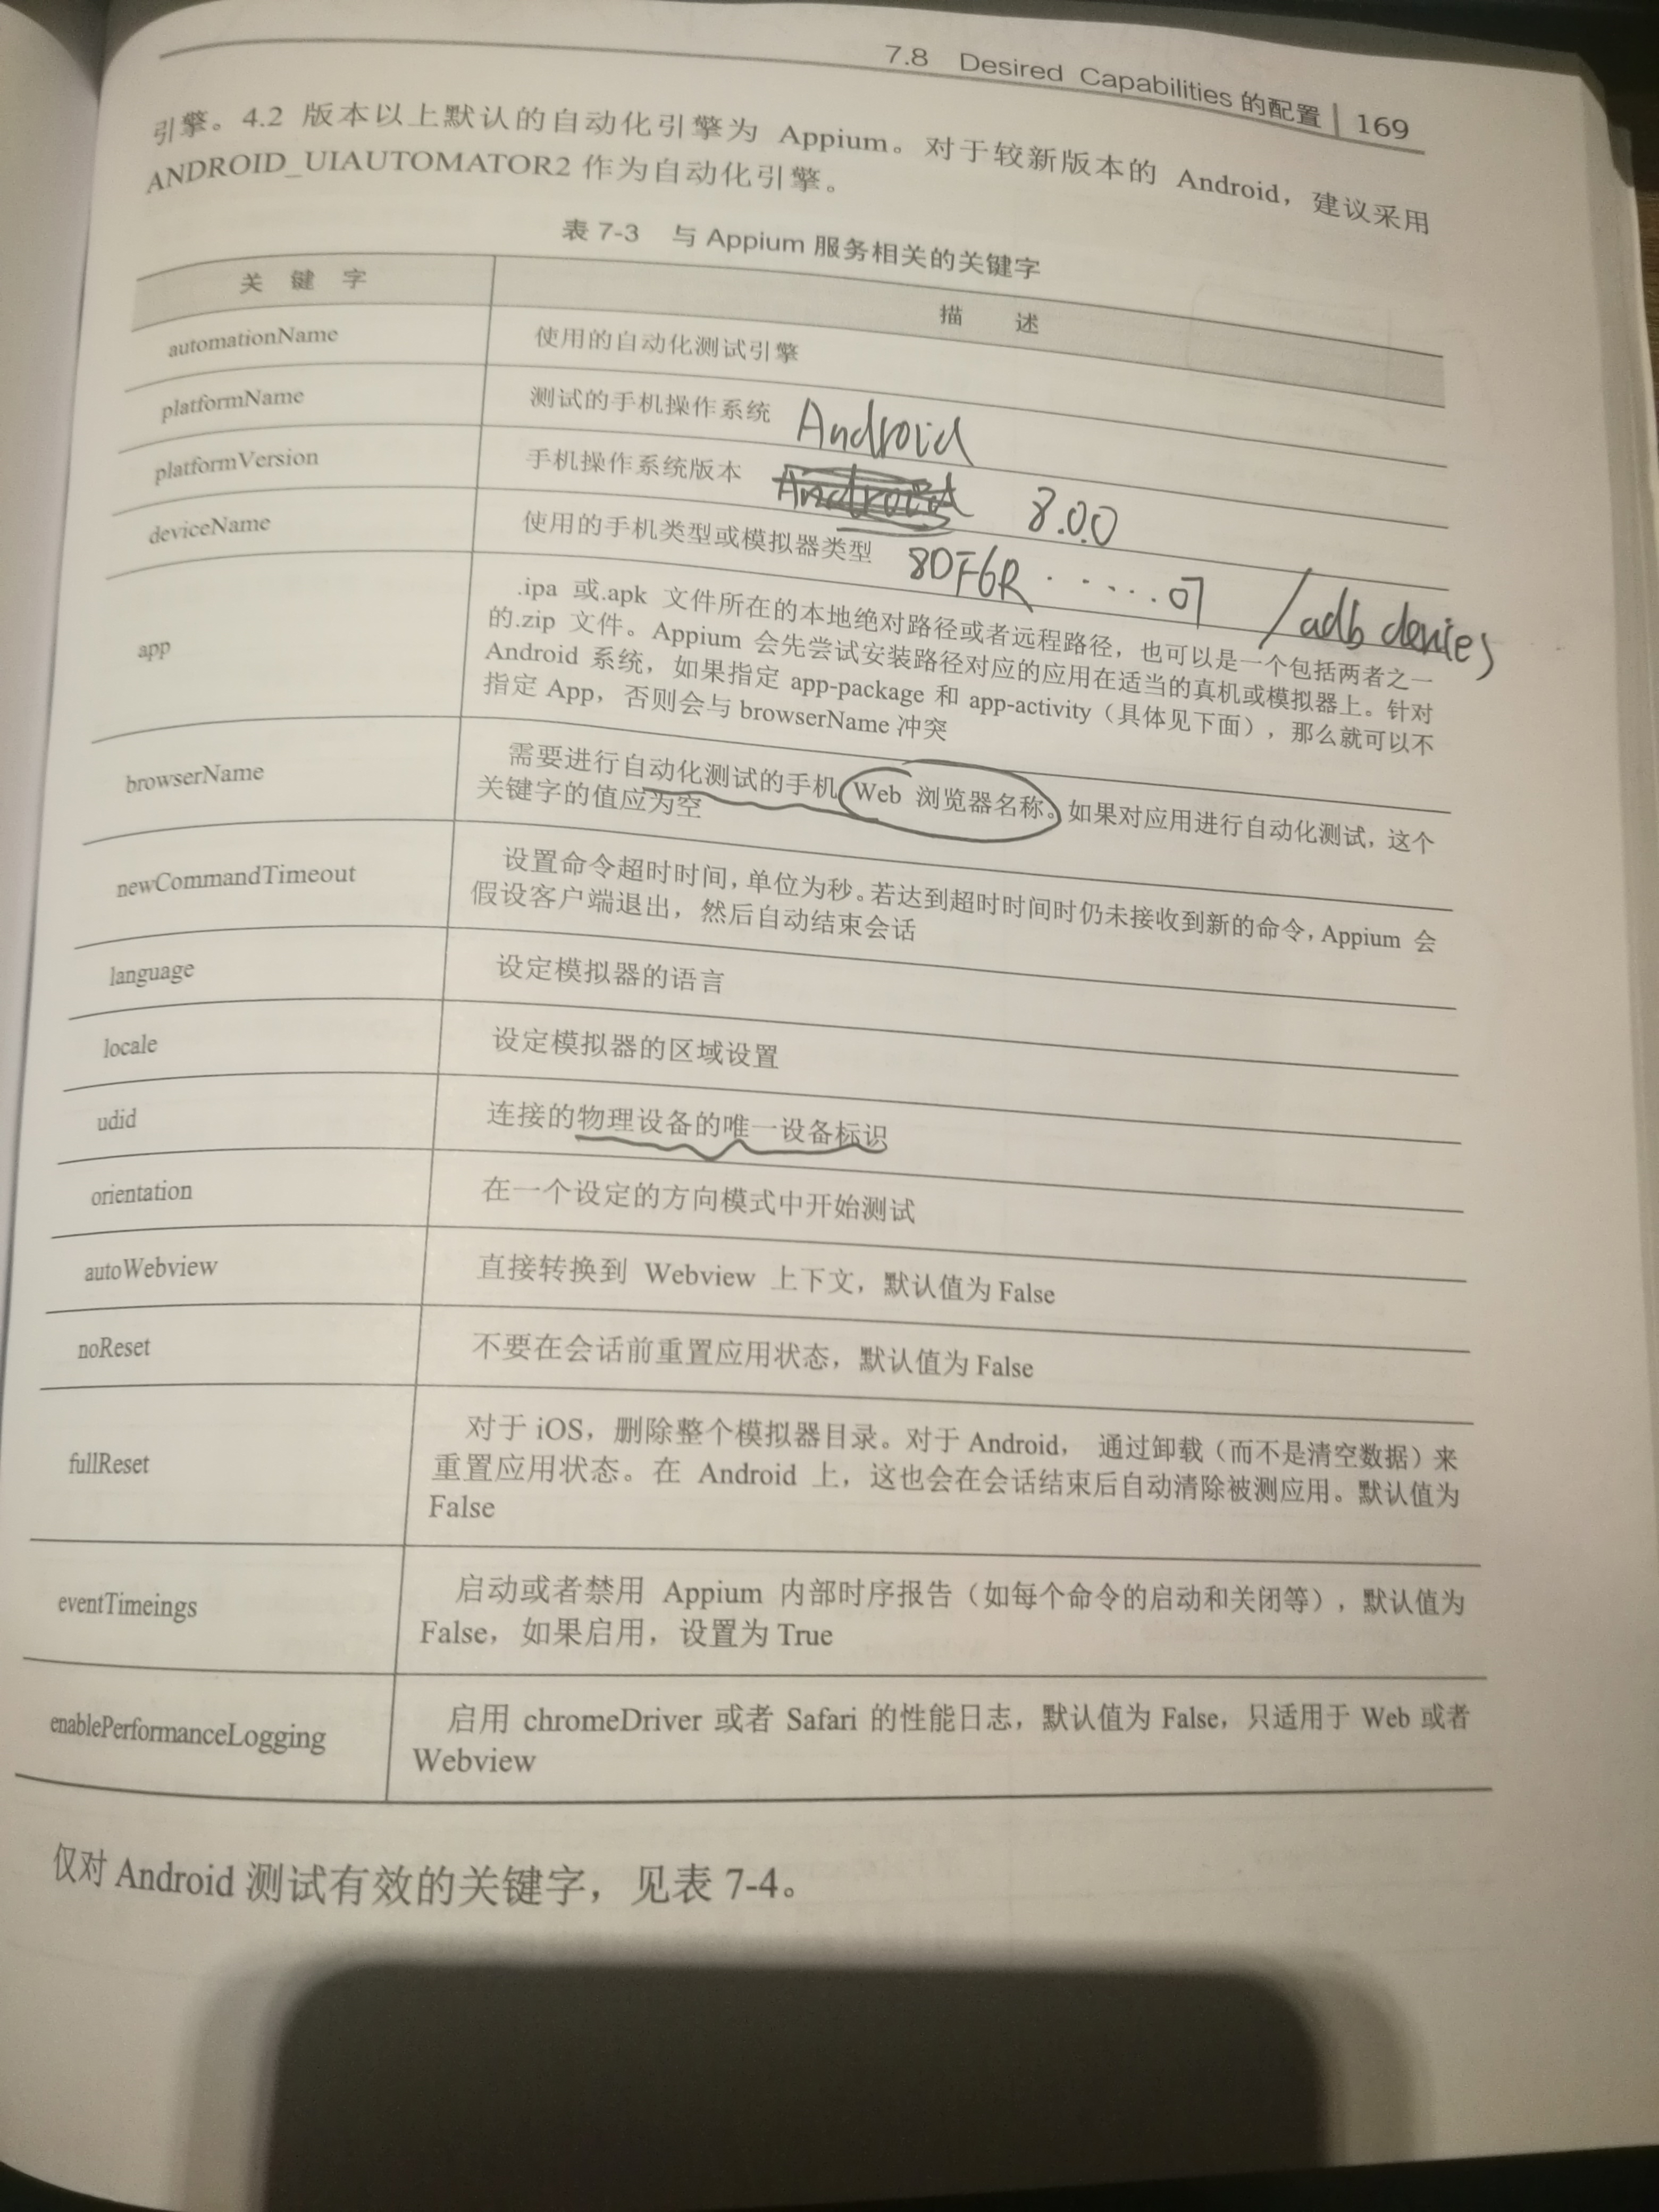 7.8 Desired Capabilities 的配置 169
引擎。4.2 版本以上默认的自动化引擎为 Appium。对于较新版本的 Android，建议采用
ANDROID_UIAUTOMATOR2 作为自动化引擎。
表 7-3 与 Appium 服务相关的关键字
关 键 字 描 述
automationName 使用的自动化测试引擎
platformName 测试的手机操作系统 Android
platformVersion 手机操作系统版本 Android 8.0.0
deviceName 使用的手机类型或模拟器类型 8DF6R ......07 /adb devies
app
.ipa 或.apk 文件所在的本地绝对路径或者远程路径，也可以是一个包括两者之一
的.zip 文件。Appium 会先尝试安装路径对应的应用在适当的真机或模拟器上。针对
Android 系统，如果指定 app-package 和 app-activity（具体见下面），那么就可以不
指定 App，否则会与 browserName 冲突
browserName
需要进行自动化测试的手机 Web 浏览器名称。如果对应用进行自动化测试，这个
关键字的值应为空
newCommandTimeout
设置命令超时时间，单位为秒。若达到超时时间时仍未接收到新的命令，Appium 会
假设客户端退出，然后自动结束会话
language 设定模拟器的语言
locale 设定模拟器的区域设置
udid 连接的物理设备的唯一设备标识
orientation 在一个设定的方向模式中开始测试
autoWebview 直接转换到 Webview 上下文，默认值为 False
noReset 不要在会话前重置应用状态，默认值为 False
fullReset
对于 iOS，删除整个模拟器目录。对于 Android， 通过卸载（而不是清空数据）来
重置应用状态。在 Android 上，这也会在会话结束后自动清除被测应用。默认值为
False
eventTimeings
启动或者禁用 Appium 内部时序报告（如每个命令的启动和关闭等），默认值为
False，如果启用，设置为 True
enablePerformanceLogging
启用 chromeDriver 或者 Safari 的性能日志，默认值为 False，只适用于 Web 或者
Webview
仅对 Android 测试有效的关键字，见表 7-4。